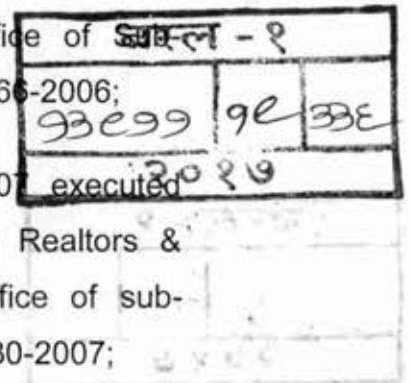 fice of Sub-
- १
66-2006;
१३९११ १९ ३३६
07 executed
२०१७
Realtors &
fice of sub-
30-2007;